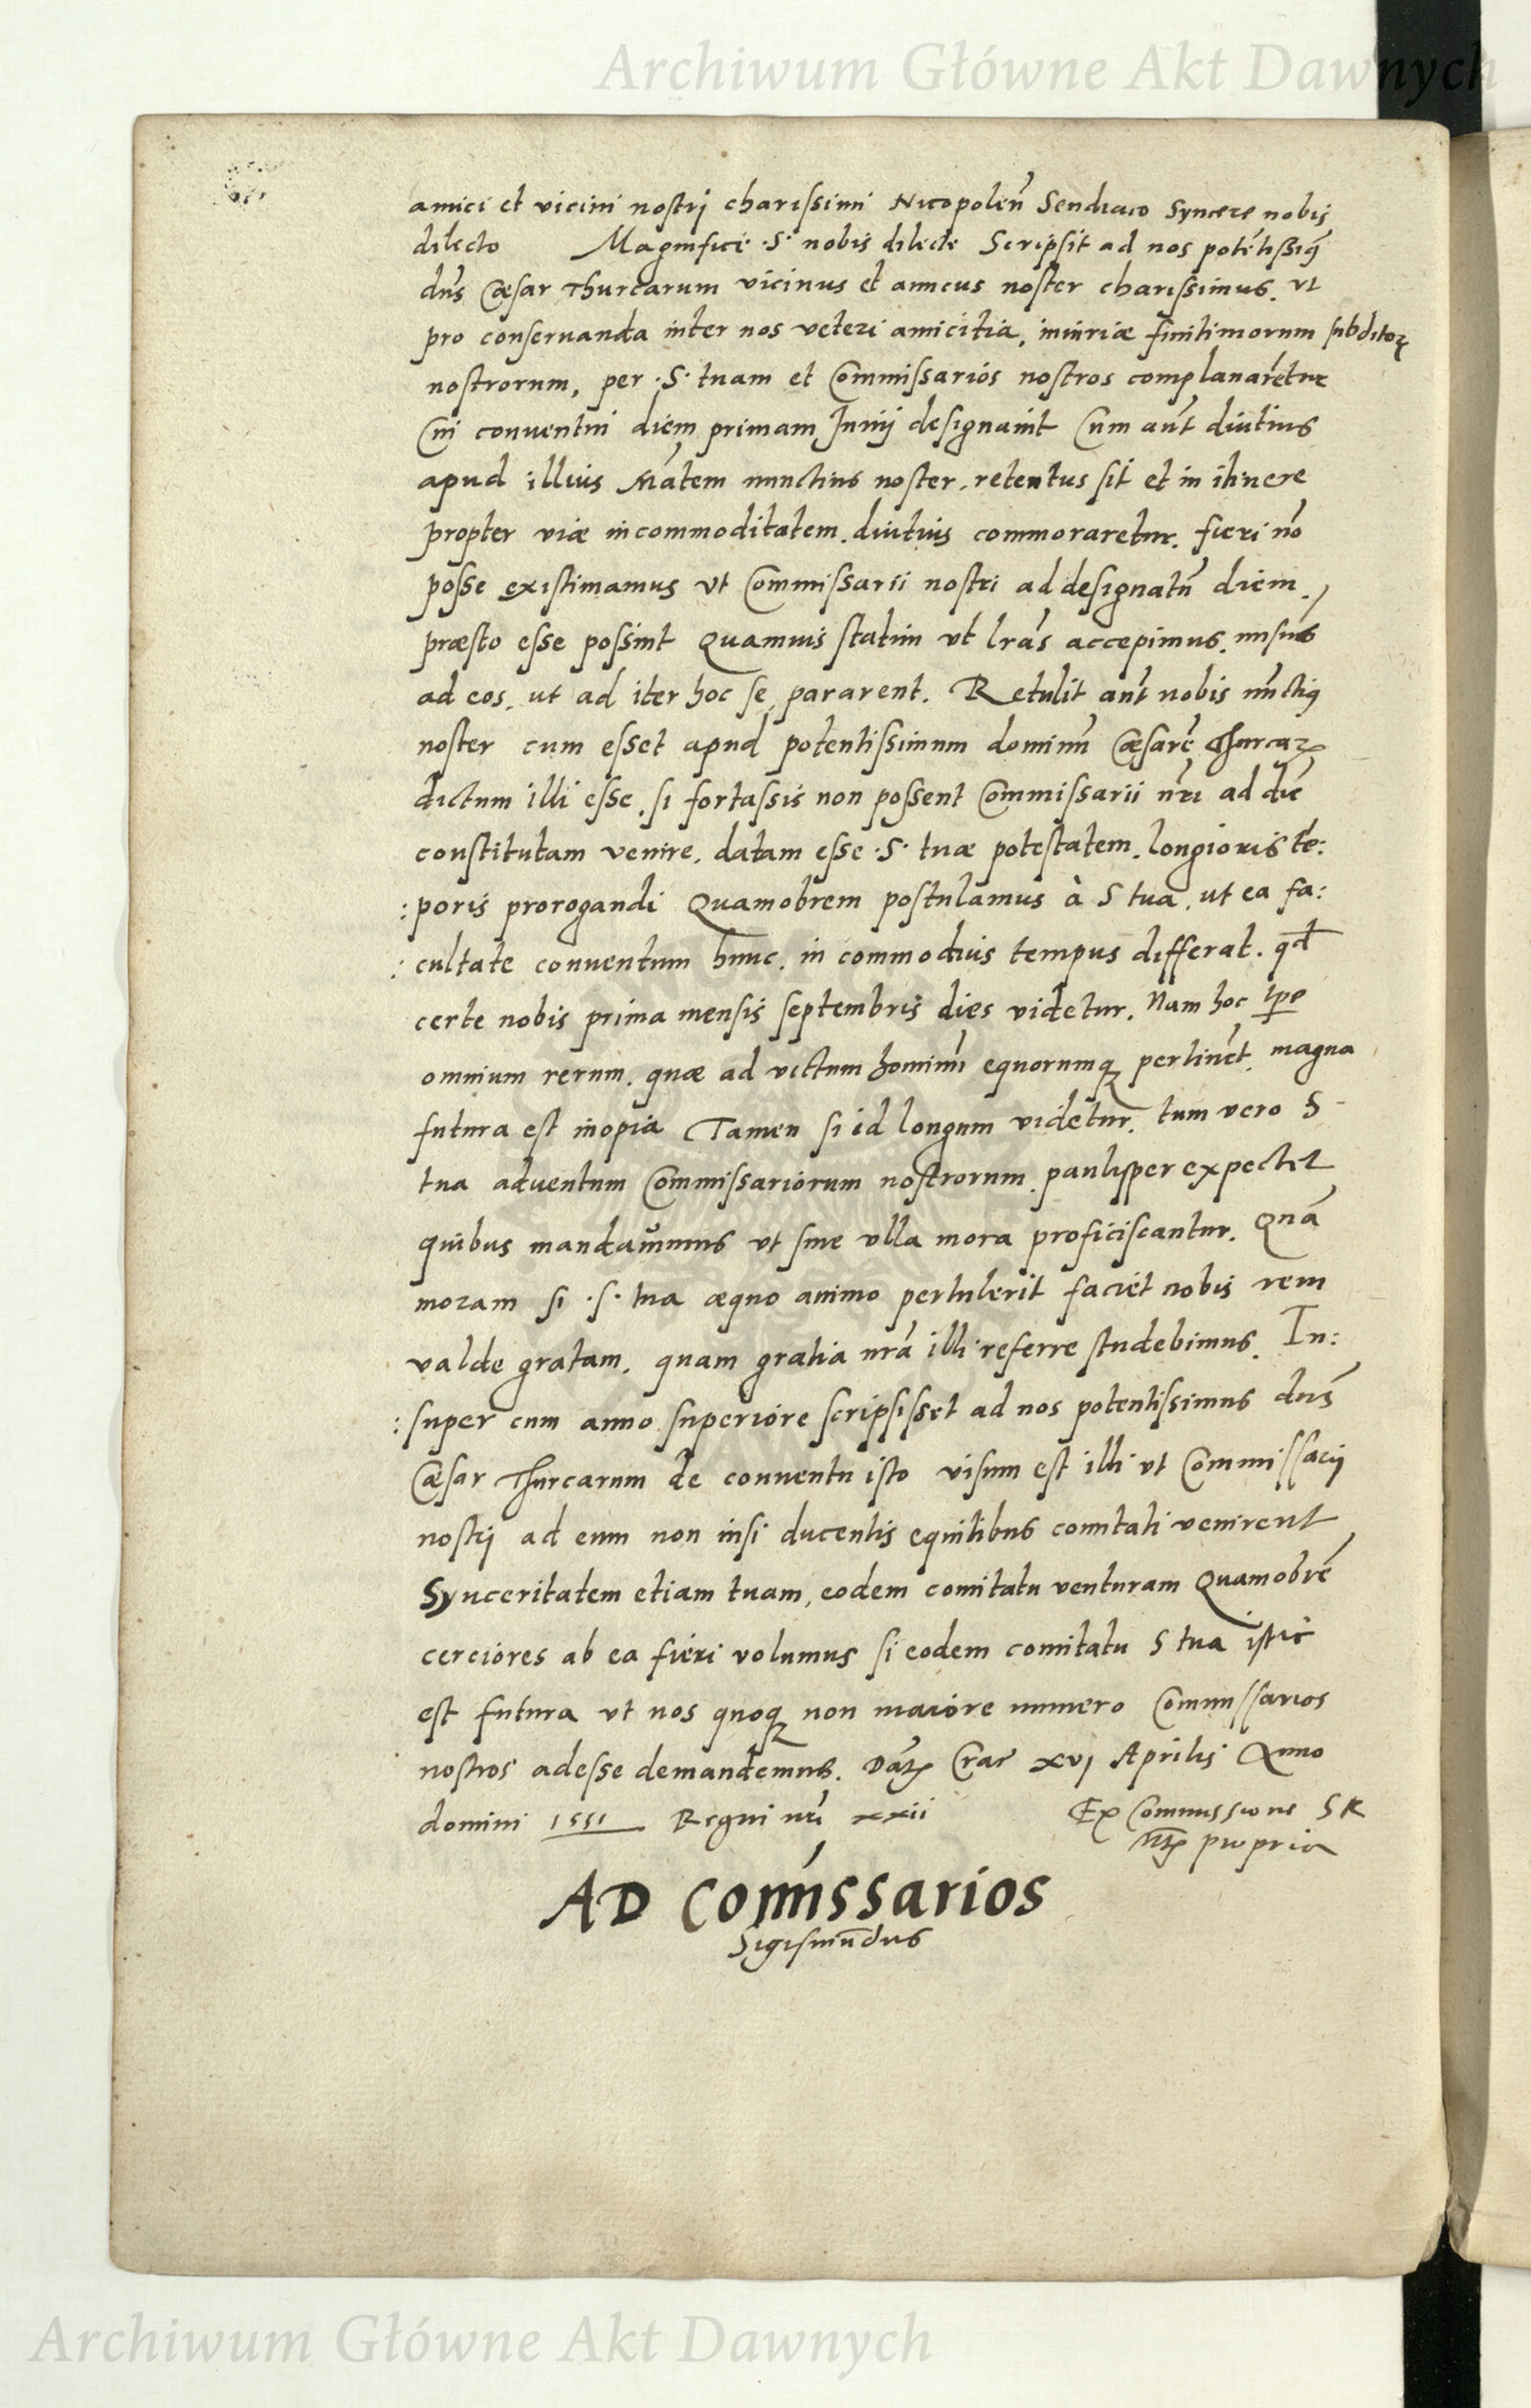 Archiwum Główne Akt Dawnych
amici et vicini nostrj charissimi Nicopoleñ Sendiaco Syncere nobis
dilecto Magnifice ·S· nobis dilecte Scripsit ad nos potẽtissiq̃
dñs Cæsar Thurcarum vicinus et amicus noster charissimus. vt
pro conseruanda inter nos veteri amicitia, iniuriæ finitimorum subditoꝝ
nostrorum, per ·S· tuam et Commissarios nostros complanarẽtur
Cui conuentui diem primam Junij designauit Cum aũt diutius
apud illius Mãtem nunctius noster, retentus sit et in itinere
propter viæ incommoditatem. diutius commoraretur. fieri nõ
posse existimamus vt Commissarii nostri ad designatũ diem.
præsto esse possint Quamuis statim vt lr̃as accepimus. misimus
ad eos. ut ad iter hoc se pararent. Retulit aũt nobis nũctiꝰ
noster cum esset apud potentissimum dominũ Cæsarẽ Thurcaꝝ
dictum illi esse. si fortassis non possent Commissarii nr̃i ad diẽ
constitutam venire. datam esse ·S· tuæ potestatem. longioris tẽ:
:poris prorogandi Quamobrem postulamus à S tua. ut ea fa:
:cultate conuentum hunc. in commodius tempus differat. qđ
certe nobis prima mensis septembris dies videtur. Nam hoc tꝑe
omnium rerum. quæ ad victum hominũ equorumq̃ pertinẽt. magna
futura est inopia Tamen si id longum videtur. tum vero S
tua aduentum Commissariorum nostrorum paulisper expectet
quibus mandauimus vt sine vlla mora proficiscantur. Quã
moram si ·S· tua æquo animo pertulerit faciet nobis rem
valde gratam. quam gratia nr̃a illi referre studebimus. In:
:super cum anno superiore scripsisset ad nos potentissimus dñs
Cæsar Thurcarum de conuentu isto visum est illi vt Commissarij
nostrj ad eum non nisi ducentis equitibus comitati venirent
Synceritatem etiam tuam, eodem comitatu venturam Quamobrẽ
cerciores ab ea fieri volumus si eodem comitatu S tua istic
est futura vt nos quoq̃ non maiore numero Commissarios
nostros adesse demandemus. Dat̃ Crac̃ xvj Aprilis Anno
domini 1551 Regni nr̃i xxii Ex Commissione SR
Mt̃is propria
AD Com̃issarios
Sigismũdus
Archiwum Główne Akt Dawnych